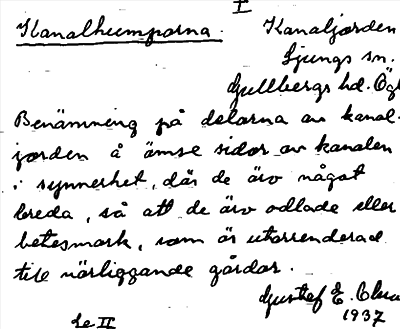 I
Kanalhumparna. Kanaljorden
Ljungs sn.
Gullbergs hd. Ögl
Benämning på delarna av kanal-
jorden å ömse sidor av kanalen
i synnerhet, där de äro något
breda, så att de äro odlade eller
betesmark, som är utarrenderad
till närliggande gårdar.
Gustaf E.
1937
Se II